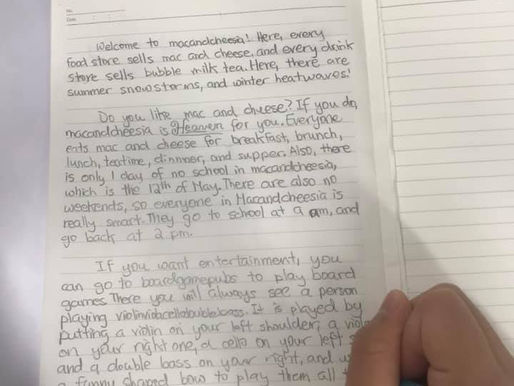 No.
Date
Welcome to macandcheesia! Here, every
food store sells mac and cheese, and every drink
store sells bubble milk tea. Here, there are
summer snowstorms, and winter heatwaves!
Do you like mac and cheese? If you do,
macandcheesia is Heaven for you. Everyone
eats mac and cheese for breakfast, brunch,
lunch, teatime, dinnner, and supper. Also, there
is only 1 day of no school in macandcheesia,
which is the 12th of May. There are also no
weekends, so everyone in Macandcheesia is
really smart. They go to school at 9 am, and
go back at 2 pm.
If you want entertainment, you
can go to boardgamepubs to play board
games. There you will always see a person
playing violinviolacellodoublebass. It is played by
putting a violin on your left shoulder, a viola
on your right one, a cello on your left
and a double bass on your right, and
a funny shaped bow to play them all